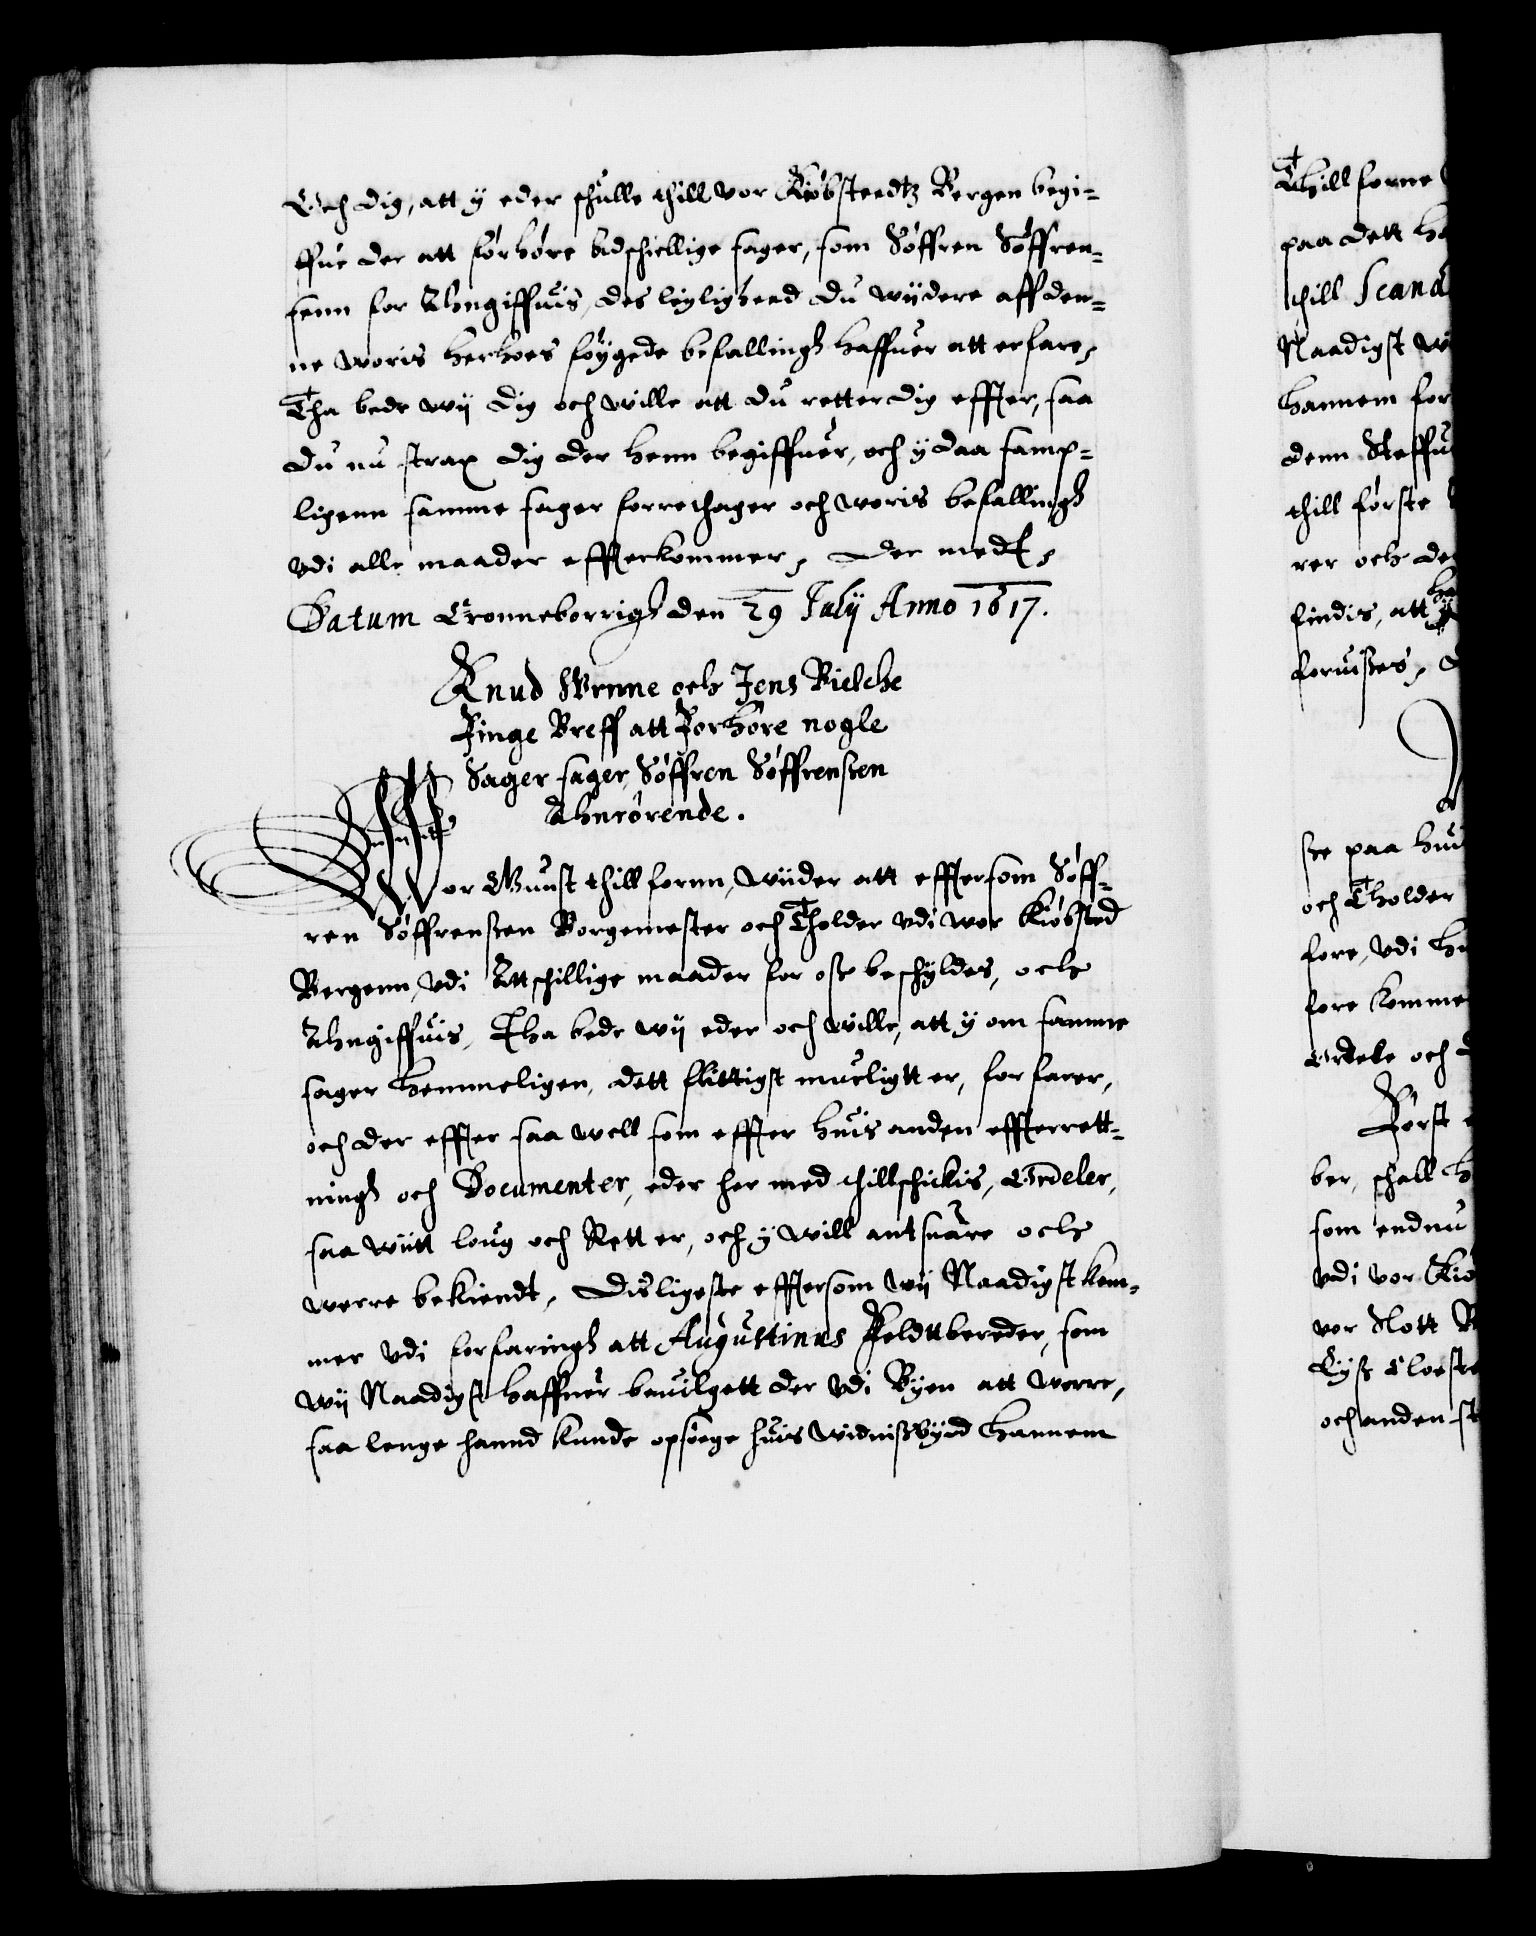 Och dig, att y eder schulle thill vor Kiøbstedtz Bergen begi-
ffue der att forhøre adschiellige sager, som Søffren Søffren-
senn for Ahngiffuis, des leyligheed du wiidere aff den-
ne woris herhoes føygede befallingh haffuer att erfare,
Tha bede wij dig och wille att du retter dig effter, saa
du nu strax dig der henn begiffuer, och y daa samp-
ligenn samme sager forrethager och woris befallingh
vdi alle maader effterkommer, Der med
Datum Cronneborrigh den 29 Julij Anno 1617.
Knud Vrnne och Jens Bielche
Finge Breff att Forhøre nogle
Sager sager Søffren Søffrenssen
Ahnrørende.
Wor Gunst thillfornn, Wiider att efftersom Søff-
ren Søffrenssen Borgemester och Tholder vdi wor Kiøbsted
Bergenn, vdi Attschillige maader for oss beschyldes, och
Ahngiffuis, Tha bede wij eder och wille, att y om samme
sager hemmeligen, dett flittigst mueligtt er, forfarer,
och der effter saa well som effter huis anden effterrett-
ningh och Documenter, eder her med thillschickis, Ordeler,
saa wiitt loug och Rett er, och y will antsuare och
werre bekiendt, Disligeste efftersom wij Naadigst kom-
mer vdi forfaringh att Augustinus Feldtbereder, som
wij Naadigst haffuer beuilgett der vdi Byen att werre,
saa lenge hannd kunde opsøege huis widnissbyrd hannem
Thill forne
paa dett
thill Scand
Naadigst
hannem for
denn
thill første
rer och
findis, att
foruisses,
ste paa
och Tholder
fore, vdi
fore komme
Ordele och
Først
ber, schall
som endnu
vdi vor
vor Slott
Lyse Closte
och anden